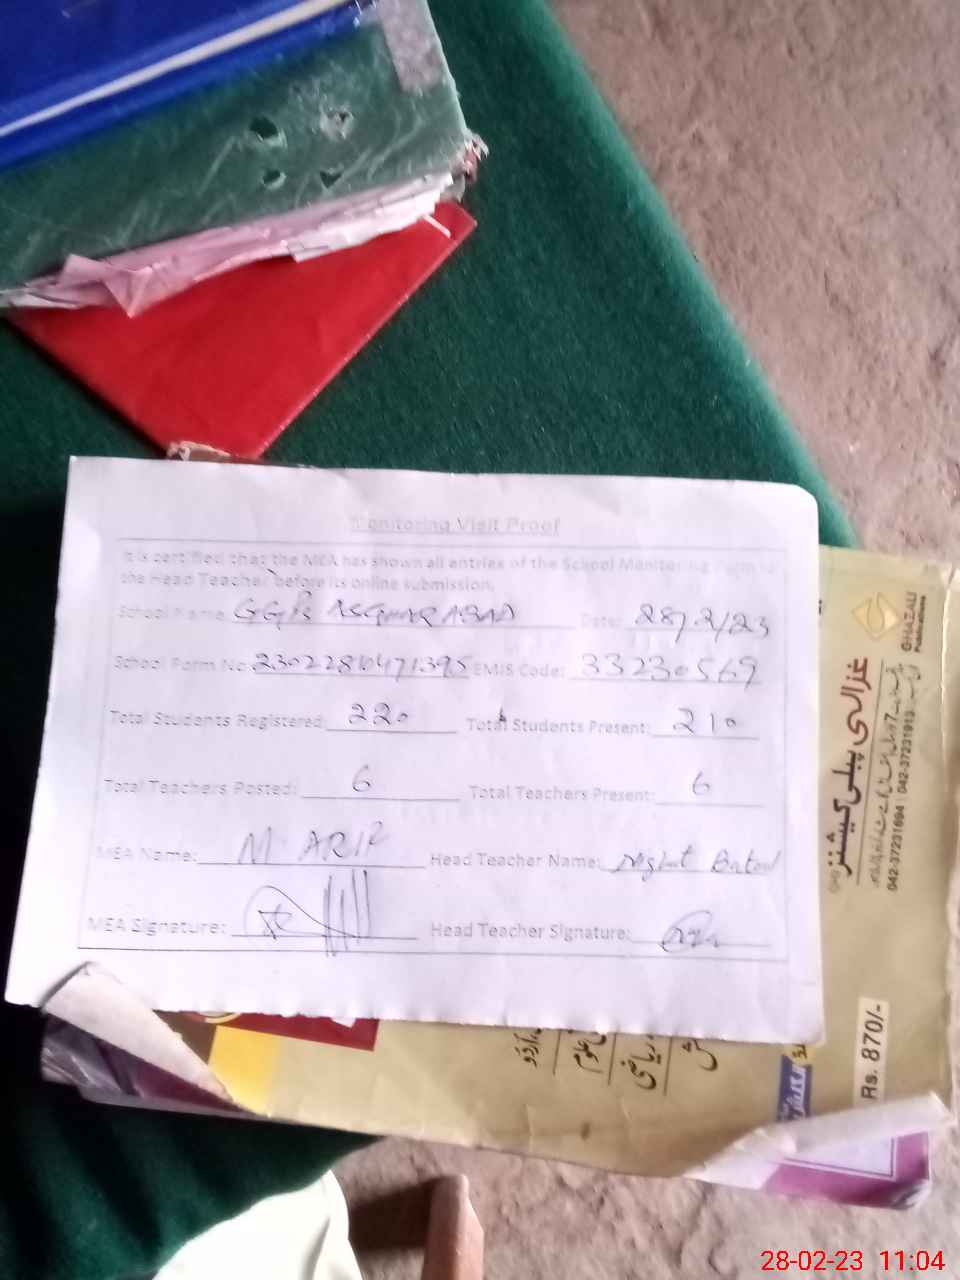 Monitoring Visit Proof
It is certified that the MEA has shown all entries of the School Monitoring Form to
the Head Teacher before its online submission.
School Name GGPS ASGHAR ABAD Date: 28/2/23
School Form No: 23022810471395 EMIS Code: 33230569
Total Students Registered: 220 Total Students Present: 210
Total Teachers Posted: 6 Total Teachers Present: 6
MEA Name: M. ARIF Head Teacher Name: Batool
MEA Signature: Head Teacher Signature:
GHAZALI
Publications
غزالی پبلی کیشنز
042-37231694 | 042-37231913
ریاضی
Rs. 870/-
28-02-23 11:04